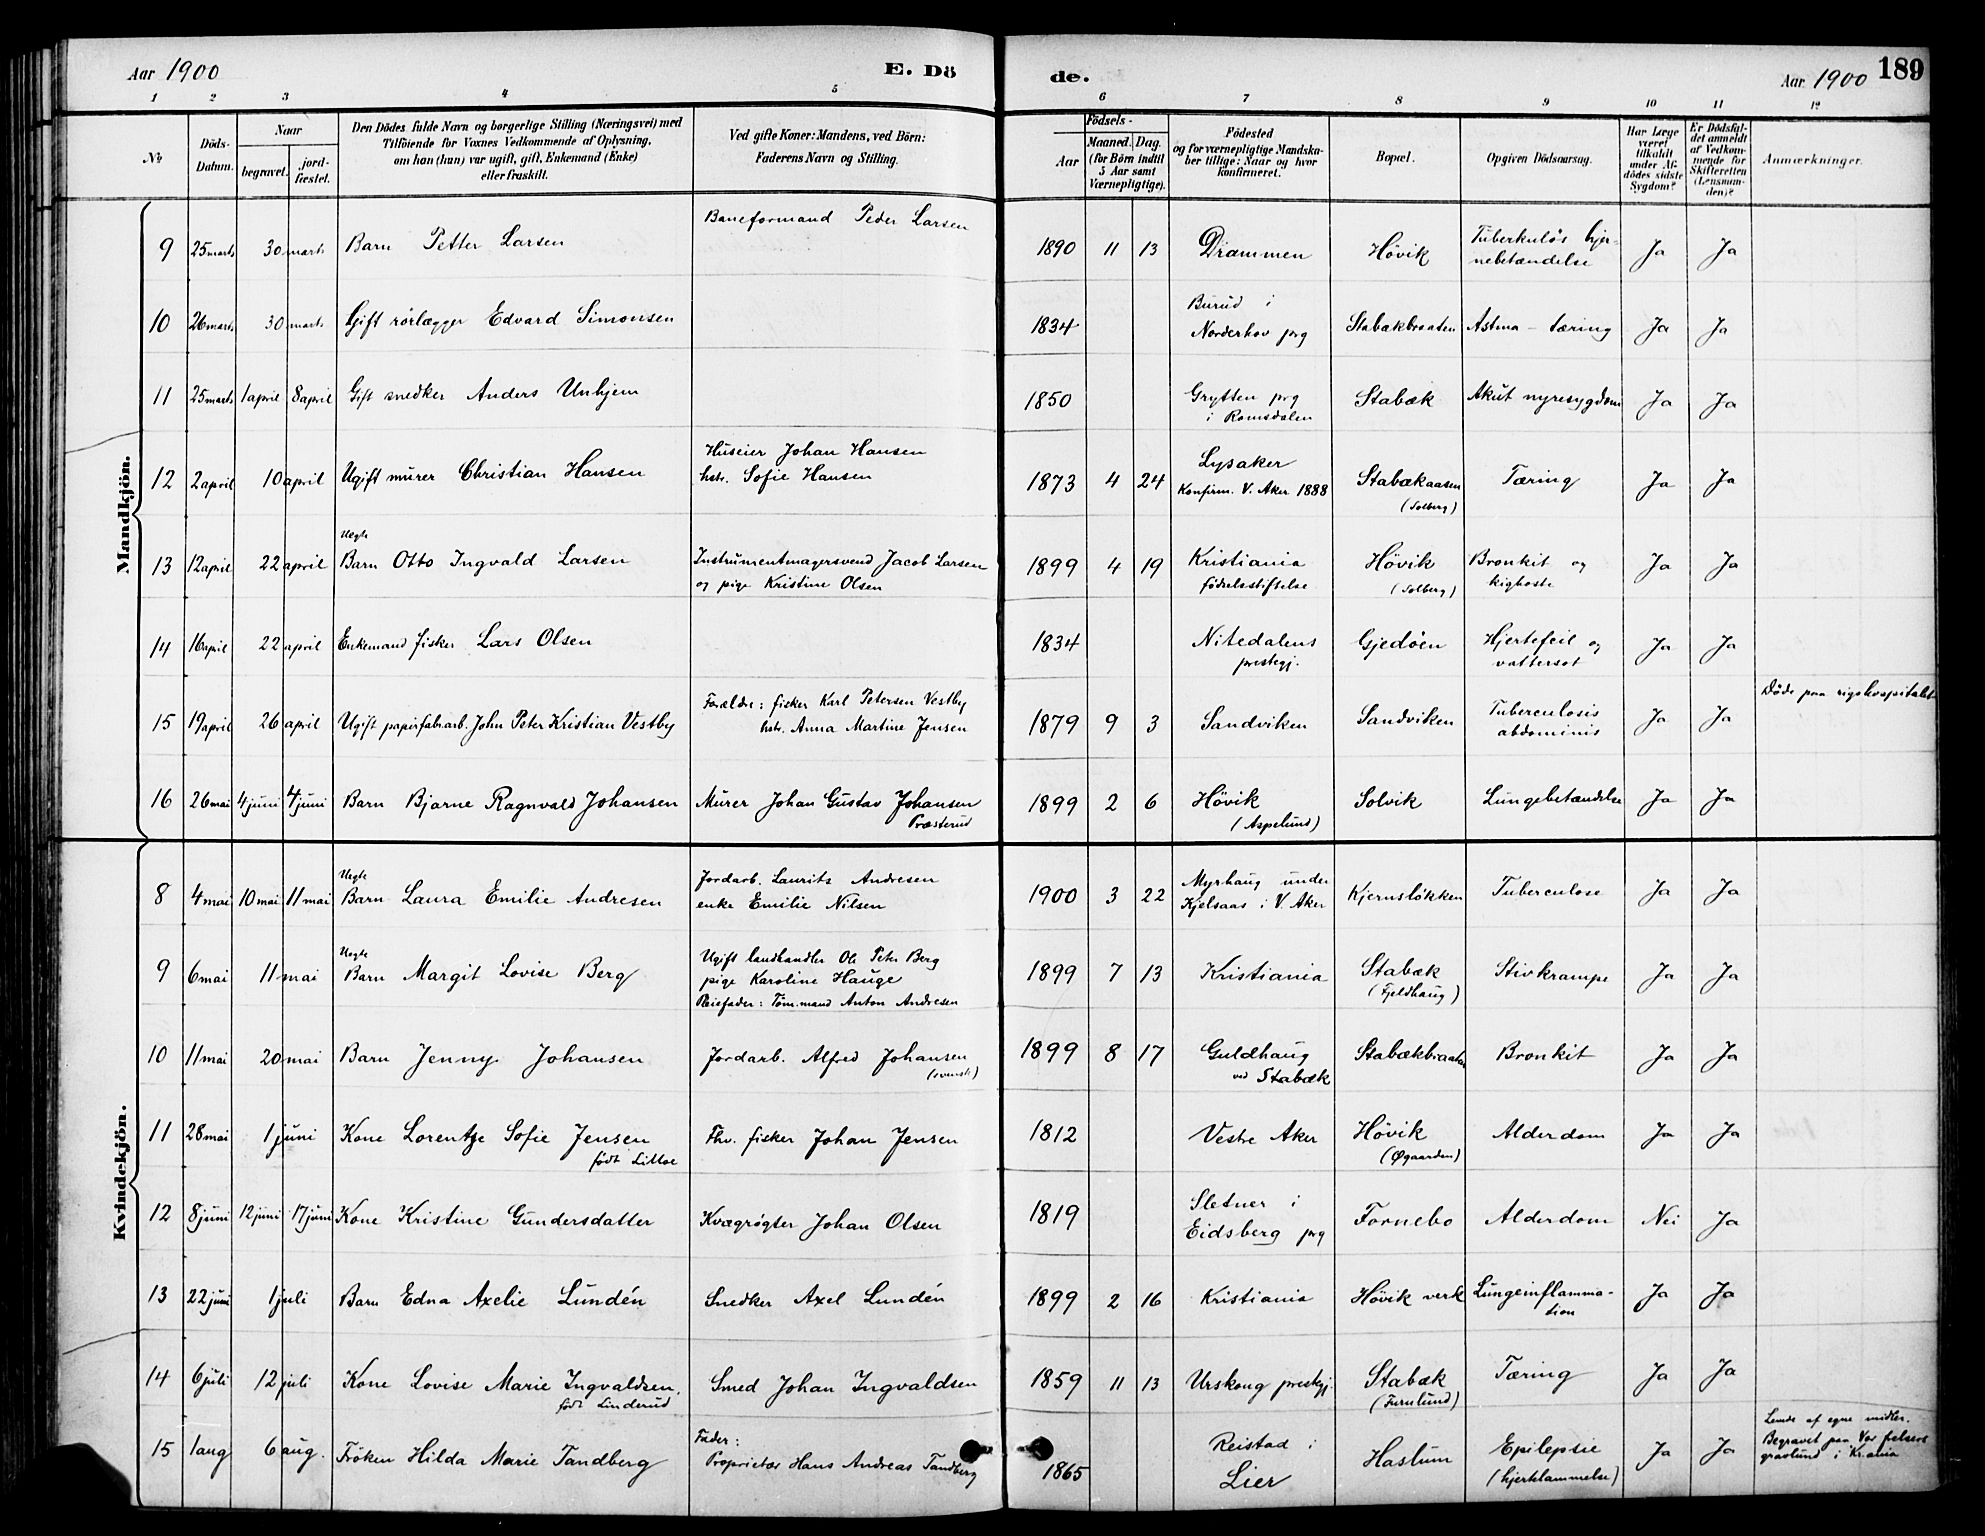 Aar 1900
E. Dö
de.
Aar 1900
189
1 2 3 4 5 6 7 8 9 10 11 12
No
Döds-Datum.
Naar
begravet.
jordfæstet.
Den Dödes fulde Navn og borgerlige Stilling (Næringsvei) med
Tilföiende for Voxnes Vedkommende af Oplysning,
om han (hun) var ugift, gift, Enkemand (Enke)
eller fraskilt.
Ved gifte Koner: Mandens, ved Börn:
Faderens Navn og Stilling.
Födsels-
Aar
Maaned. Dag.
(for Börn indtil
5 Aar samt
Værnepligtige).
Födested
og for værnepligtige Mandskaber tillige: Naar og hvor
konfirmeret.
Bopæl.
Opgiven Dödsaarsag.
Har Læge
været
tilkaldt
under Afdödes sidste
Sygdom?
Er Dödsfaldet anmeldt
af Vedkommende for
Skifteretten
(Lensmanden)?
Anmærkninger.
Mandkjön.
9 25 marts 30 marts Barn Petter Larsen Baneformand Peder Larsen 1890 11 13 Drammen Hövik Tuberkulös hjernebetændelse Ja Ja
10 26 marts 30 marts Gift rörlægger Edvard Simonsen 1834 Burud i Norderhov prg Stabækbraaten Astma - tæring Ja Ja
11 25 marts 1 april 8 april Gift snedker Anders Unhjem 1850 Grytten prg i Romsdalen Stabæk Akut nyresygdom Ja Ja
12 2 april 10 april Ugift murer Christian Hansen Huseier Johan Hansen hstr. Sofie Hansen 1873 4 24 Lysaker Konfirm. V. Aker 1888 Stabækaasen (Solberg) Tæring Ja Ja
13 12 april 22 april Uegte Barn Otto Ingvald Larsen Instrumentmagersvend Jacob Larsen og pige Kristine Olsen 1899 4 19 Kristiania födselsstiftelse Hövik (Solberg) Bronkit og kighoste Ja Ja
14 16 april 22 april Enkemand fisker Lars Olsen 1834 Nitedalens prestegj. Gjedöen Hjertefeil og vattersot Ja Ja
15 19 april 26 april Ugift papirfabarb. John Peter Kristian Vestby Forældre: fisker Karl Petersen Vestby hstr. Anna Martine Jensen 1879 9 3 Sandviken Sandviken Tuberculosis abdominis Ja Ja Döde paa rigshospitalet
16 26 mai 4 juni 4 juni Barn Bjarne Ragnvald Johansen Murer Johan Gustav Johansen Præsterud 1899 2 6 Hövik (Aspelund) Solvik Lungebetændelse Ja Ja
Kvindekjön.
8 4 mai 10 mai 11 mai Uegte Barn Laura Emilie Andresen Jordarb. Laurits Andresen enke Emilie Nilsen 1900 3 22 Myrhaug under Kjelsaas i V. Aker Kjernsløkken Tuberculose Ja Ja
9 6 mai 11 mai Uegte Barn Margit Lovise Berg Ugift landhandler Ole Peter Berg pige Karoline Hauge Pleiefader: Töm.mand Anton Andresen 1899 7 13 Kristiania Stabæk (Fjeldhaug) Stivkrampe Ja Ja
10 11 mai 20 mai Barn Jenny Johansen Jordarb. Alfred Johansen (svensk) 1899 8 17 Guldhaug ved Stabæk Stabækbraaten Bronkit Ja Ja
11 28 mai 1 juni Kone Lorentze Sofie Jensen født Littoe Fhv. fisker Johan Jensen 1812 Vestre Aker Hövik (Øgaarden) Alderdom Ja Ja
12 8 juni 12 juni 17 juni Kone Kristine Gundersdatter Kvægrögter Johan Olsen 1819 Sletner i Eidsberg prg Fornebo Alderdom Nei Ja
13 22 juni 1 juli Barn Edna Axelie Lundén Snedker Axel Lundén 1899 2 16 Kristiania Hövik verk Lungeinflammation Ja Ja
14 6 juli 12 juli Kone Lovise Marie Ingvaldsen, født Linderud Smed Johan Ingvaldsen 1859 11 13 Urskoug prestgj. Stabæk (Furulund) Tæring Ja Ja
15 1 aug 6 aug. Fröken Hilda Marie Tandberg Fader: Proprietær Hans Andreas Tandberg 1865 Reistad i Lier Haslum Epilepsie (hjertelammelse) Ja Ja Levde af egne midler. Begravet paa Vor frelsers gravlund i Kr.ania